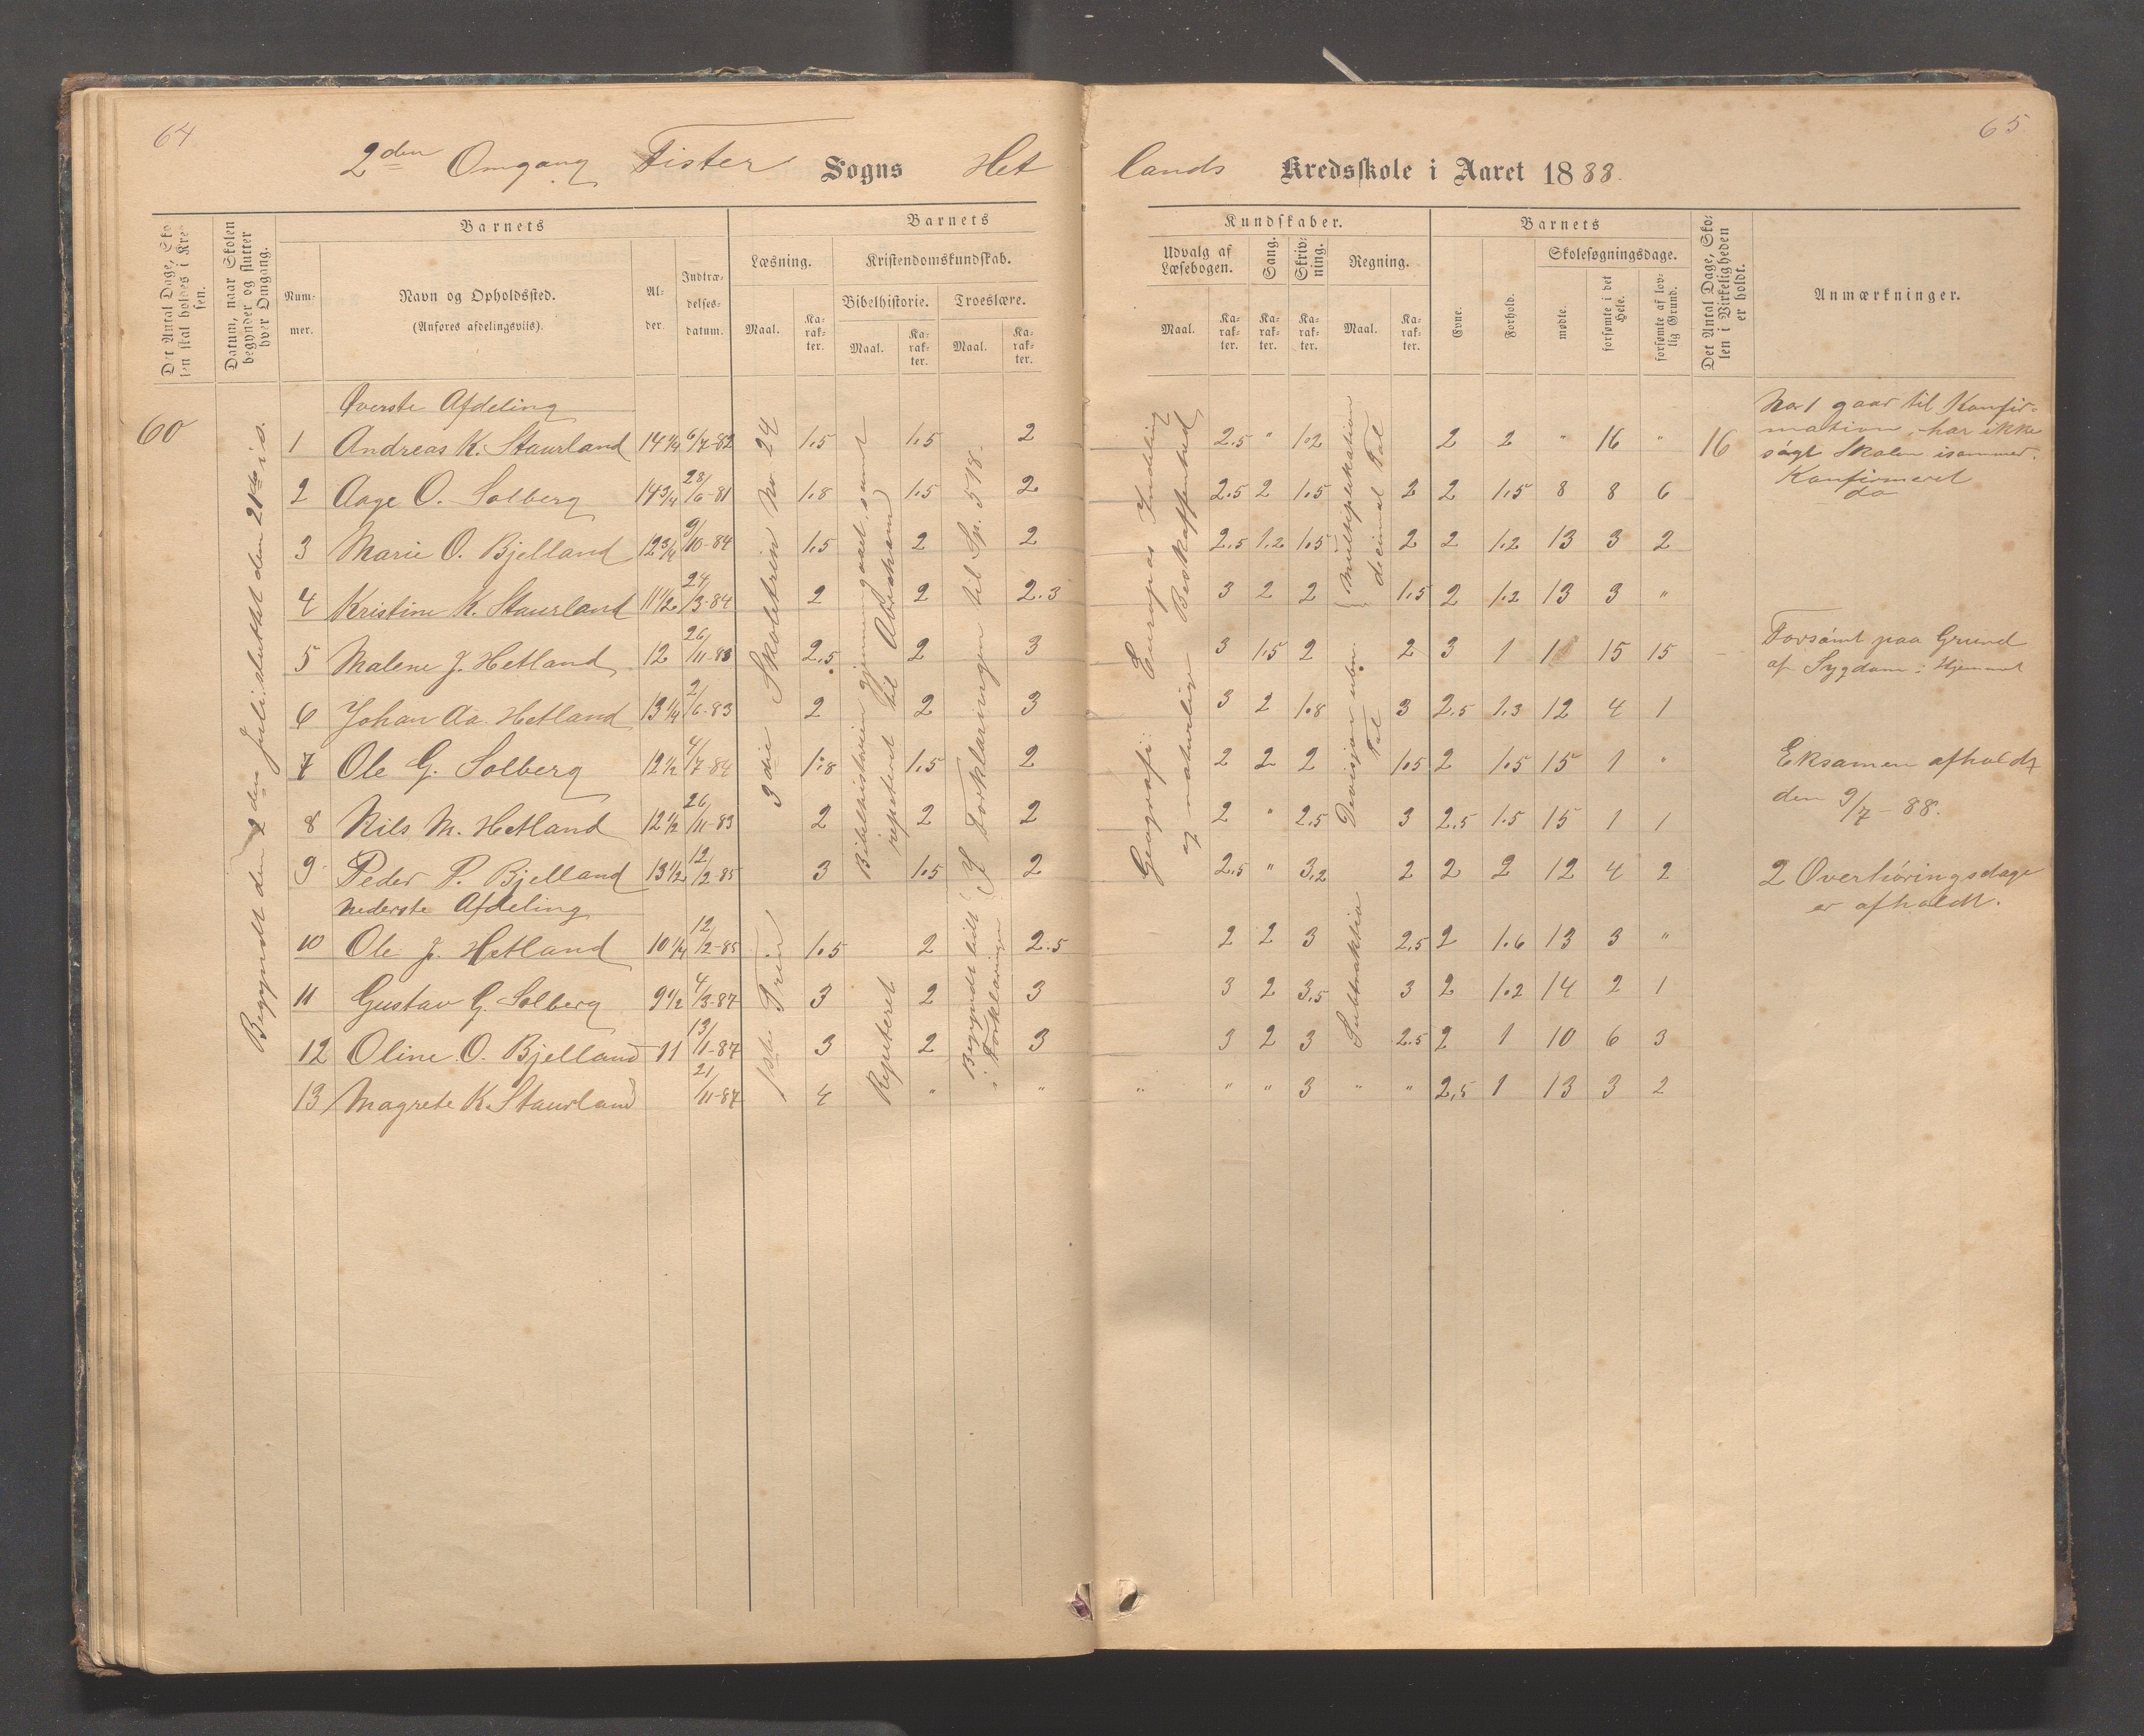 64
65
2den Omgang Fister Sogns Hetlands Kredsskole i Aaret 1888.
Det Antal Dage, Skolen skal holdes i Kredsen.
Datum, naar Skolen begynder og slutter hver Omgang.
Barnets
Nummer.
Navn og Opholdssted.
(Anføres afdelingsviis).
Alder.
Indtrædelsesdatum.
Barnets Kundskaber.
Læsning.
Maal.
Karakter.
Kristendomskundskab.
Bibelhistorie.
Maal.
Karakter.
Troeslære.
Maal.
Karakter.
Udvalg af Læsebogen.
Maal.
Karakter.
Sang.
Karakter.
Skrivning.
Karakter.
Regning.
Maal.
Karakter.
Barnets
Evne.
Forhold.
Skolesøgningsdage.
mødte.
forsømte i det Hele.
forsømte af lovlig Grund.
Det Antal Dage, Skolen i Virkeligheden er holdt.
Anmærkninger.
60
Begyndt den 2den Juli sluttet den 21de s.
Øverste Afdeling
1 Andreas K. Staurland 14 1/4 6/7-82 1.5 1.5 2 2.5 " 1.2 2 2 " 16 " 16
2 Aage O. Solberg 14 3/4 28/6-81 1.8 1.5 2 2.5 2 1.5 2 2 1.5 8 8 6
3 Marie O. Bjelland 12 3/4 9/10-84 1.5 2 2 2.5 1.2 1.5 2 2 1.2 13 3 2
4 Kristine K. Staurland 11 1/2 24/3-84 2 2 2.3 3 2 2 1.5 2 1.2 13 3 "
5 Malene J. Hetland 12 26/11-83 2.5 2 3 3 1.5 2 2 3 1 1 15 15
6 Johan Aa. Hetland 13 1/4 2/6-83 2 2 3 3 2 1.8 3 2.5 1.3 12 4 1
7 Ole G. Solberg 12 1/2 4/7-84 1.8 1.5 2 2 2 2 1.5 2 1.5 15 1 "
8 Nils M. Hetland 12 1/2 26/11-83 2 2 2 2 " 2.5 3 2.5 1.5 15 1 1
9 Peder P. Bjelland 13 1/2 12/2-85 3 1.5 2 2.5 " 3.2 2 2 2 12 4 2
nederste Afdeling
10 Ole J. Hetland 10 1/4 12/2-85 1.5 2 2.5 2 2 3 2.5 2 1.6 13 3 "
11 Gustav G. Solberg 9 1/2 4/3-87 3 2 3 3 2 3.5 3 2 1.2 14 2 1
12 Oline O. Bjelland 11 13/1-87 3 2 3 3 2 3 2.5 2 1 10 6 3
13 Magrete K. Staurland 21/11-87 4 " " " " " 3 " " 2.5 1 13 3 2
3die Skoletrin No 24
1ste Trin
Bibelhistorien gjennemgaaet, samt
repeteret til Abraham
Repeteret
Forklaringen til Sp. 518.
Begyndt lidt
i Forklaringen
Geografi: Europas Inddeling
og naturlige Beskaffenhed
Multiplikation
decimal Tal
Devisjon ubn.
Tal
Subtraktion
No 1 gaar til Konfir-
mation, har ikke
søgt Skolen isommer.
Konfirmeret
do
Forsømt paa Grund
af Sygdom i Hjemmet
Eksamen afholdt
den 9/7-88.
2 Overhøringsdage
er afholdt.